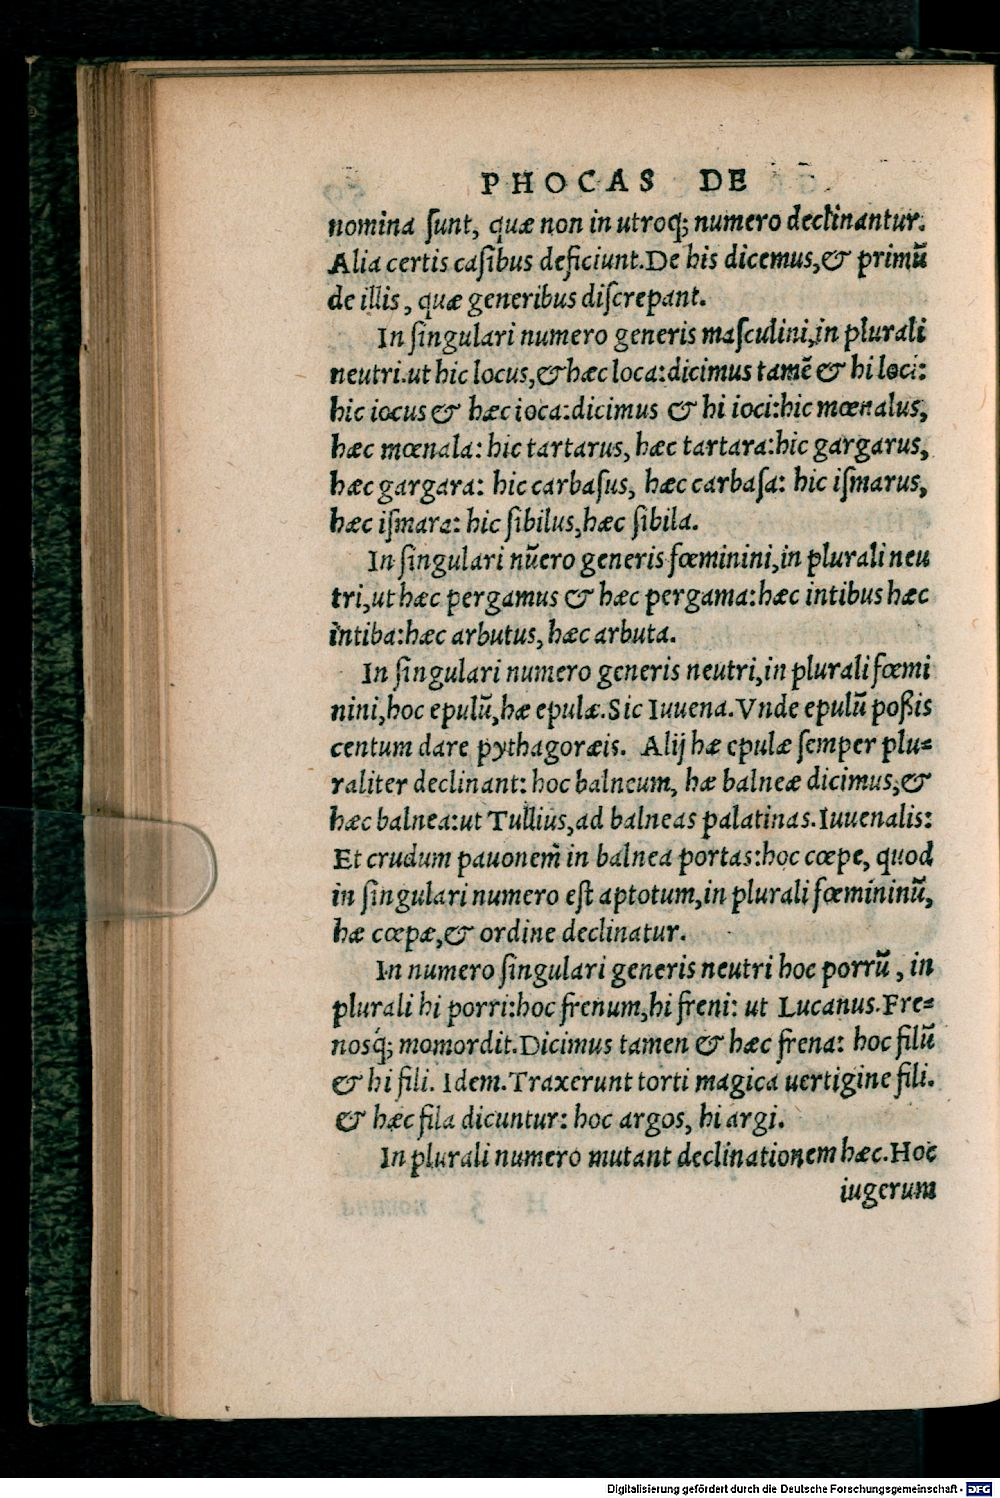 PHOCAS DE
nomina ſunt, quæ non in utroq; numero declinantur.
Alia certis caſibus deficiunt.De his dicemus,& primũ
de illis, quæ generibus diſcrepant.
In ſingulari numero generis maſculini,in plurali
neutri.ut hic locus,& hæc loca:dicimus tamẽ & hi loci:
hic iocus & hæc ioca:dicimus & hi ioci:hic mœnalus,
hæc mœnala: hic tartarus, hæc tartara:hic gargarus,
hæc gargara: hic carbaſus, hæc carbaſa: hic iſmarus,
hæc iſmara: hic ſibilus,hæc ſibila.
In ſingulari nũero generis fœminini,in plurali neu
tri,ut hæc pergamus & hæc pergama:hæc intibus hæc
intiba:hæc arbutus, hæc arbuta.
In ſingulari numero generis neutri,in plurali fœmi
nini,hoc epulũ,hæ epulæ.Sic Iuuena.Vnde epulũ poßis
centum dare pythagoræis. Alij hæ epulæ ſemper plu=
raliter declinant: hoc balneum, hæ balneæ dicimus,&
hæc balnea:ut Tullius,ad balneas palatinas.Iuuenalis:
Et crudum pauonem in balnea portas:hoc cœpe, quod
in ſingulari numero eſt aptotum,in plurali fœmininũ,
hæ cœpæ,& ordine declinatur.
In numero ſingulari generis neutri hoc porrũ, in
plurali hi porri:hoc frenum,hi freni: ut Lucanus.Fre=
nosq́; momordit.Dicimus tamen & hæc frena: hoc filũ
& hi fili. Idem.Traxerunt torti magica uertigine fili.
& hæc fila dicuntur: hoc argos, hi argi.
In plurali numero mutant declinationem hæc.Hoc
iugerum
Digitalisierung gefördert durch die Deutsche Forschungsgemeinschaft - DFG